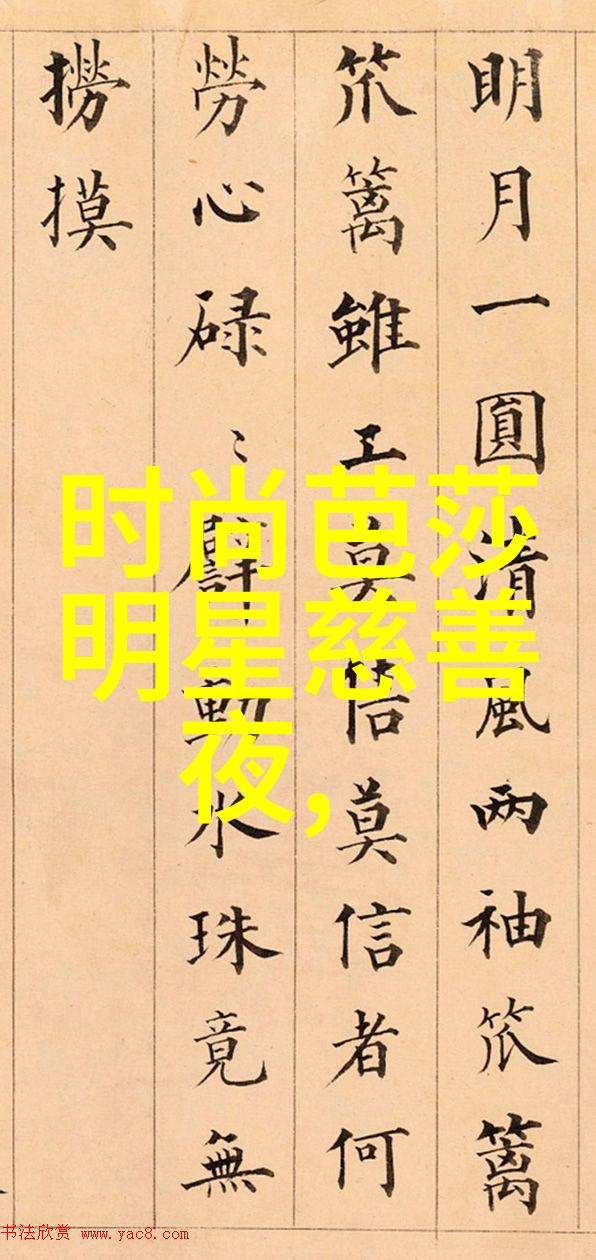 明月一圓清風两袖笊篱
笊篱雖工莫莫信者何
勞心碌〻動水珠竟無
撈摸
时尚芭莎
明星慈善
夜,
书法欣赏 www.yac8.com